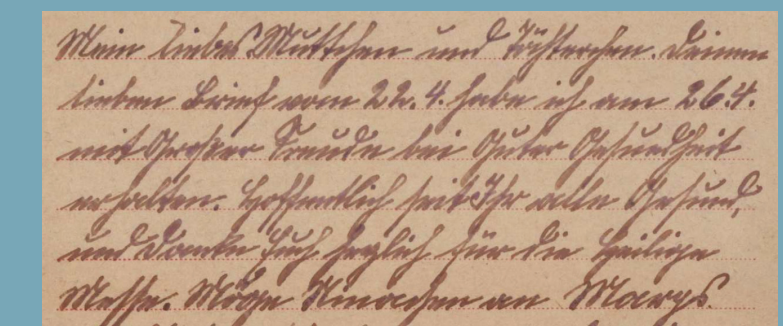 Mein liebes Muttchen und Töchterchen. Deinen
lieben Brief vom 22.4. habe ich am 26.4.
mit Großer Freude bei Guter Gesundheit
erhalten. Hoffentlich seit Ihr alle Gesund,
und Danke Euch herzlich für die heilige
Messe. Möge an